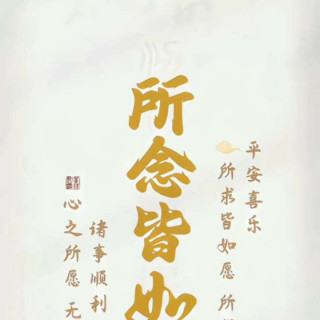 平安喜乐
所求皆如愿 所
所念皆如
诸事顺利
心之所愿 无